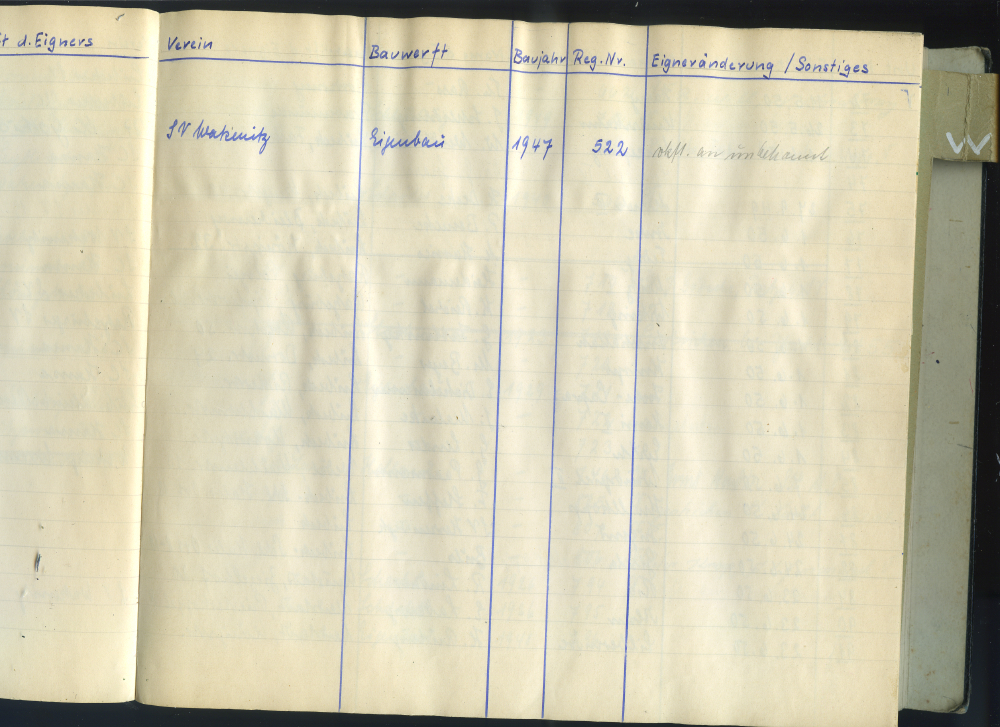 d. Eigners Verein Bauwerft Baujahr Reg. Nr. Eigneränderung / Sonstiges
SV Wakenitz Eigenbau 1947 522 vkft. an unbekannt